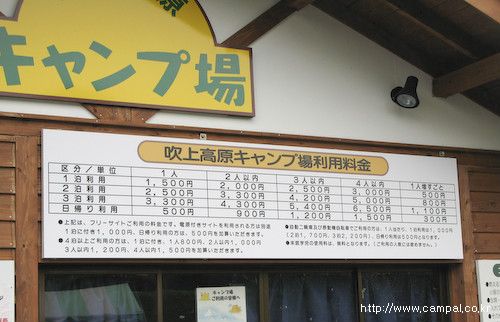 原
キャンプ場
吹上高原キャンプ場利用料金
区分/単位 1人 2人以内 3人以内 4人以内 1人増すごと
1泊利用 1,500円 2,000円 2,500円 3,000円 500円
2泊利用 2,500円 3,300円 4,200円 5,000円 800円
3泊利用 3,300円 4,300円 5,400円 6,500円 1,100円
日帰り利用 500円 900円 1,200円 1,500円 300円
●上記は、フリーサイトご利用の料金です。電源付きサイトを利用される方は別途
1泊に付き1,000円、日帰り利用の方は、500円を加算いただきます。
●4泊以上ご利用の方は、1泊に付き、1人800円、2人以内1,000円
3人以内1,200円、4人以内1,500円を加算いただきます。
●自動二輪車及び原動機自転車でご利用の方は、1人当たり、1泊利用は1,000円
(2泊1,700円、3泊2,200円)、日帰り利用は500円となります。
●未就学児の使用料は、無料となります。(ご利用の人数には含めません。)
キャンプ場
ご利用の皆様へ
http://www.campal.co.kr